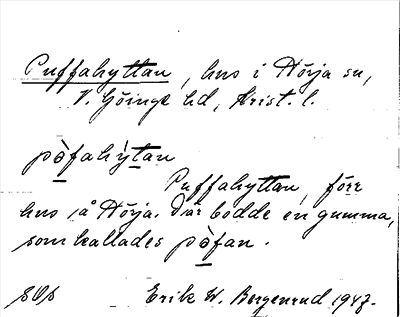 Puffahyttan, hus i Hörja sn,
V. Göinge hd, Krist. l.
pòfahỳtan
Puffahyttan, förr
hus på Hörja. Där bodde en gumma,
som kallades pòfan.
Erik W. Bergenrud 1947.